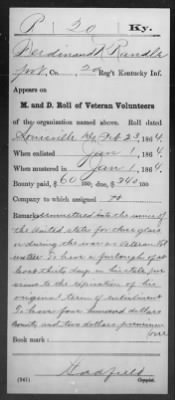 P 20 Ky.
Ferdinand Rundle
Co. , 20 Reg't Kentucky Inf.
Appears on
M. and D. Roll of Veteran Volunteers
of the organization named above. Roll dated
Louisville Ky Feb 23, 1864.
When enlisted Jan 1, 1864.
When mustered in Jan 1, 1864.
Bounty paid, $60 100; due, $340 100
Company to which assigned
Remarks: remustered into the service of
the United States for three years
or during the war as Veteran Vol-
unteer To have a furlough of at
least thirty days in his state pre
vious to the expiration of his
original term of enlistment
To have four hundred dollars
bounty and two dollars premium
Book mark:
Hadfield
(361) Copyist.